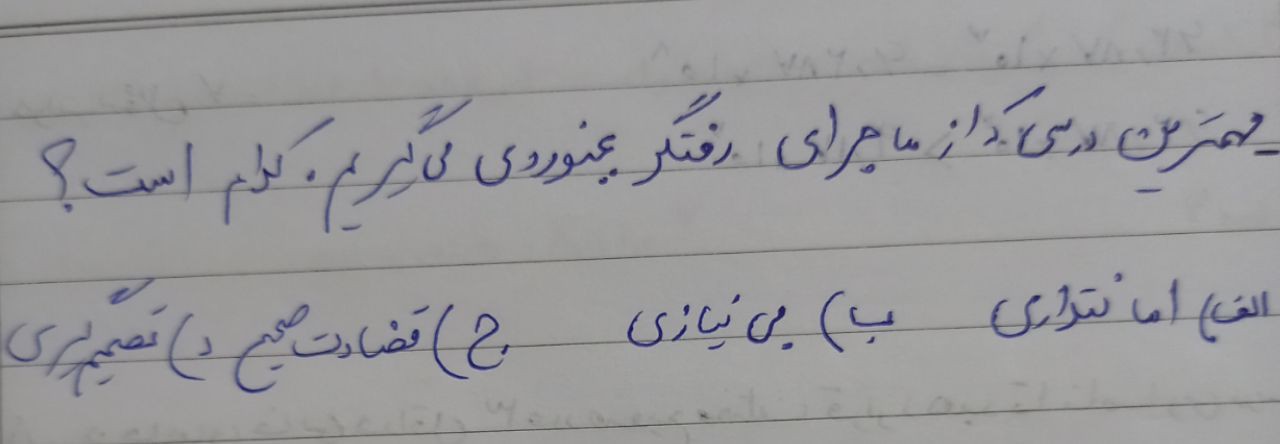 مهمترین درسی که از ماجرای رفتگر بجنوردی می‌گیریم. کدام است؟
الف) امانتداری ب) بی نیازی ج) قضاوت صحیح د) تصمیم‌گیری